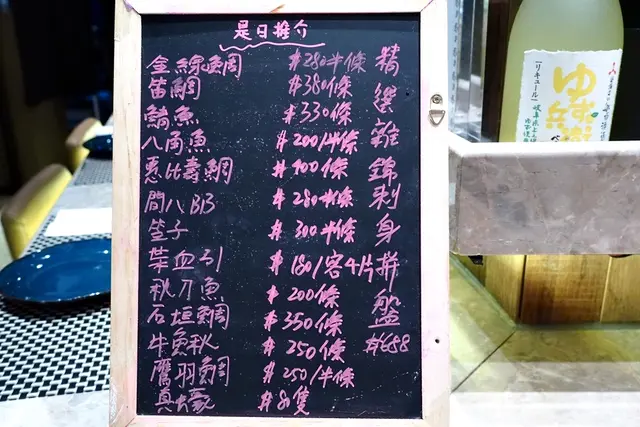 是日推介
金線鯛 $280半條
笛鯛 $380條
鯖魚 $330條
八角魚 $200/半條
惠比壽鯛 $400條
間八BB $280半條
笙子 $300半條
菜血引 $180/客4片
秋刀魚 $200條
石垣鯛 $350條
牛魚秋 $250條
鷹羽鯛 $250/半條
真蠔 $80隻
精選雜錦刺身拼盤 $688
リキュール
ゆず
兵衛